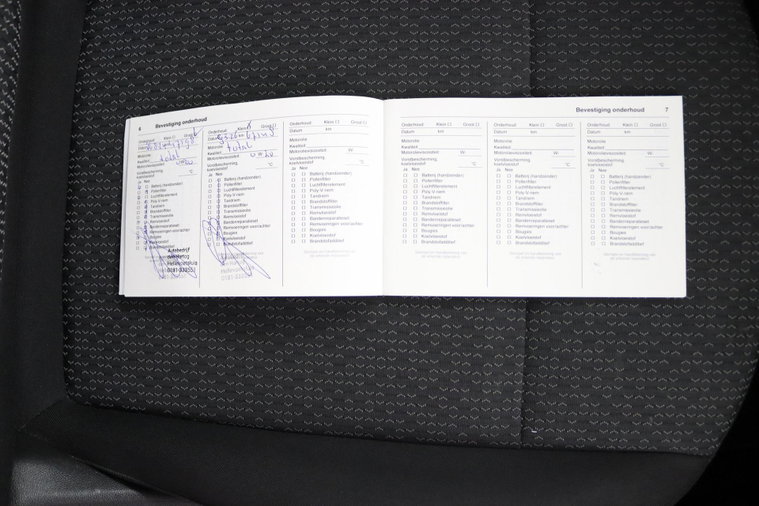 6 Bevestiging onderhoud
Onderhoud: Klein ☐ Groot ☐
Datum km
Motorolie
Kwaliteit total
Motorolieviscositeit:
Vorstbescherming
koelvloeistof: °C
Ja Nee
Batterij (handzender)
Pollenfilter
Luchtfilterelement
Poly V riem
Tandriem
Brandstoffilter
Transmissieolie
Remvloeistof
Bandenreparatieset
Remvoeringen voor/achter
Bougies
Koelvloeistof
Brandstofadditief
Autobedrijf
Hellevoetsluis
0181-333553
Onderhoud: Klein ☐ Groot ☐
Datum km
Motorolie
Kwaliteit total
Motorolieviscositeit:
Vorstbescherming
koelvloeistof: °C
Ja Nee
Batterij (handzender)
Pollenfilter
Luchtfilterelement
Poly V riem
Tandriem
Brandstoffilter
Transmissieolie
Remvloeistof
Bandenreparatieset
Remvoeringen voor/achter
Bougies
Koelvloeistof
Brandstofadditief
Onderhoud: Klein ☐ Groot ☐
Datum km
Motorolie
Kwaliteit
Motorolieviscositeit: W-
Vorstbescherming
koelvloeistof °C
Ja Nee
Batterij (handzender)
Pollenfilter
Luchtfilterelement
Poly V riem
Tandriem
Brandstoffilter
Transmissieolie
Remvloeistof
Bandenreparatieset
Remvoeringen voor/achter
Bougies
Koelvloeistof
Brandstofadditief
Bevestiging onderhoud 7
Onderhoud: Klein ☐ Groot ☐
Datum km
Motorolie
Kwaliteit
Motorolieviscositeit: W-
Vorstbescherming
koelvloeistof °C
Ja Nee
Batterij (handzender)
Pollenfilter
Luchtfilterelement
Poly V riem
Tandriem
Brandstoffilter
Transmissieolie
Remvloeistof
Bandenreparatieset
Remvoeringen voor/achter
Bougies
Koelvloeistof
Brandstofadditief
Onderhoud: Klein ☐ Groot ☐
Datum km
Motorolie
Kwaliteit
Motorolieviscositeit: W-
Vorstbescherming
koelvloeistof °C
Ja Nee
Batterij (handzender)
Pollenfilter
Luchtfilterelement
Poly V riem
Tandriem
Brandstoffilter
Transmissieolie
Remvloeistof
Bandenreparatieset
Remvoeringen voor/achter
Bougies
Koelvloeistof
Brandstofadditief
Onderhoud: Klein ☐ Groot ☐
Datum km
Motorolie
Kwaliteit
Motorolieviscositeit: W-
Vorstbescherming
koelvloeistof °C
Ja Nee
Batterij (handzender)
Pollenfilter
Luchtfilterelement
Poly V riem
Tandriem
Brandstoffilter
Transmissieolie
Remvloeistof
Bandenreparatieset
Remvoeringen voor/achter
Bougies
Koelvloeistof
Brandstofadditief